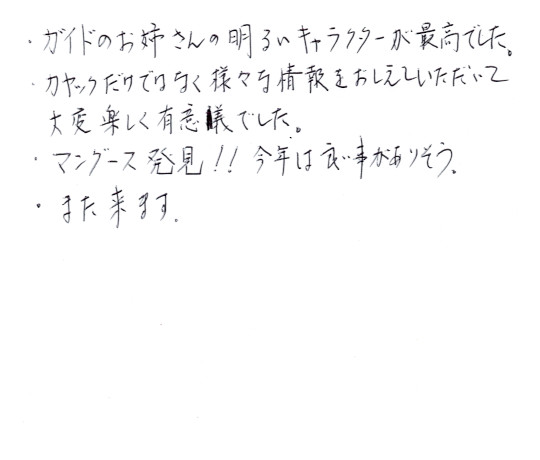 ・ガイドのお姉さんの明るいキャラクターが最高でした。
・カヤックだけではなく様々な情報をおしえていただいて
大変楽しく有意義でした。
・マングース発見!!今年は良い事がありそう。
・また来ます.